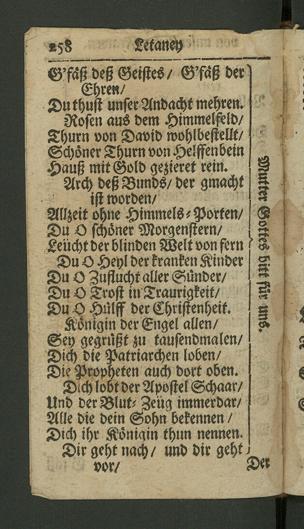 258 Letaney
G'fäß deß Geistes/ G'fäß der
Ehren/
Du thust unser Andacht mehren.
Rosen aus dem Himmelfeld/
Thurn von David wohlbestellt/
Schöner Thurn von Helffenbein
Hauß mit Gold gezieret rein.
Arch deß Bunds/ der gmacht
ist worden/
Allzeit ohne Himmels-Porten/
Du O schöner Morgenstern/
Leücht der blinden Welt von fern
Du O Heyl der kranken Kinder
Du O Zuflucht aller Sünder/
Du O Trost in Traurigkeit/
Du O Hülff der Christenheit.
Königin der Engel allen/
Sey gegrüßt zu tausendmalen/
Dich die Patriarchen loben/
Die Propheten auch dort oben.
Dich lobt der Apostel Schaar/
Und der Blut-Zeüg immerdar/
Alle die dein Sohn bekennen/
Dich ihr Königin thun nennen.
Dir geht nach/ und dir geht
vor/ Der
Mutter Gottes bitt für uns.